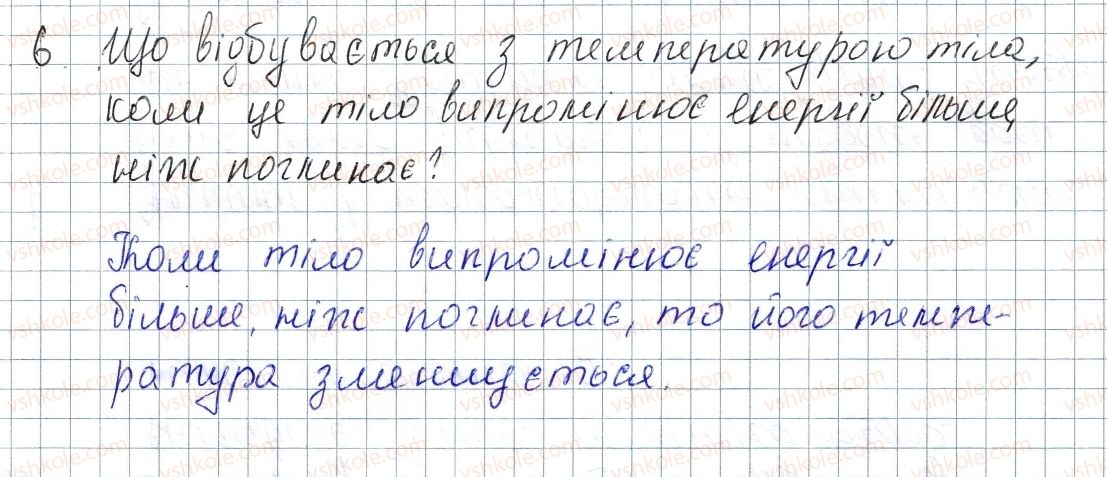 6 Що відбувається з температурою тіла,
коли це тіло випромінює енергії більше,
ніж поглинає?
Коли тіло випромінює енергії
більше, ніж поглинає, то його темпе-
ратура зменшується.